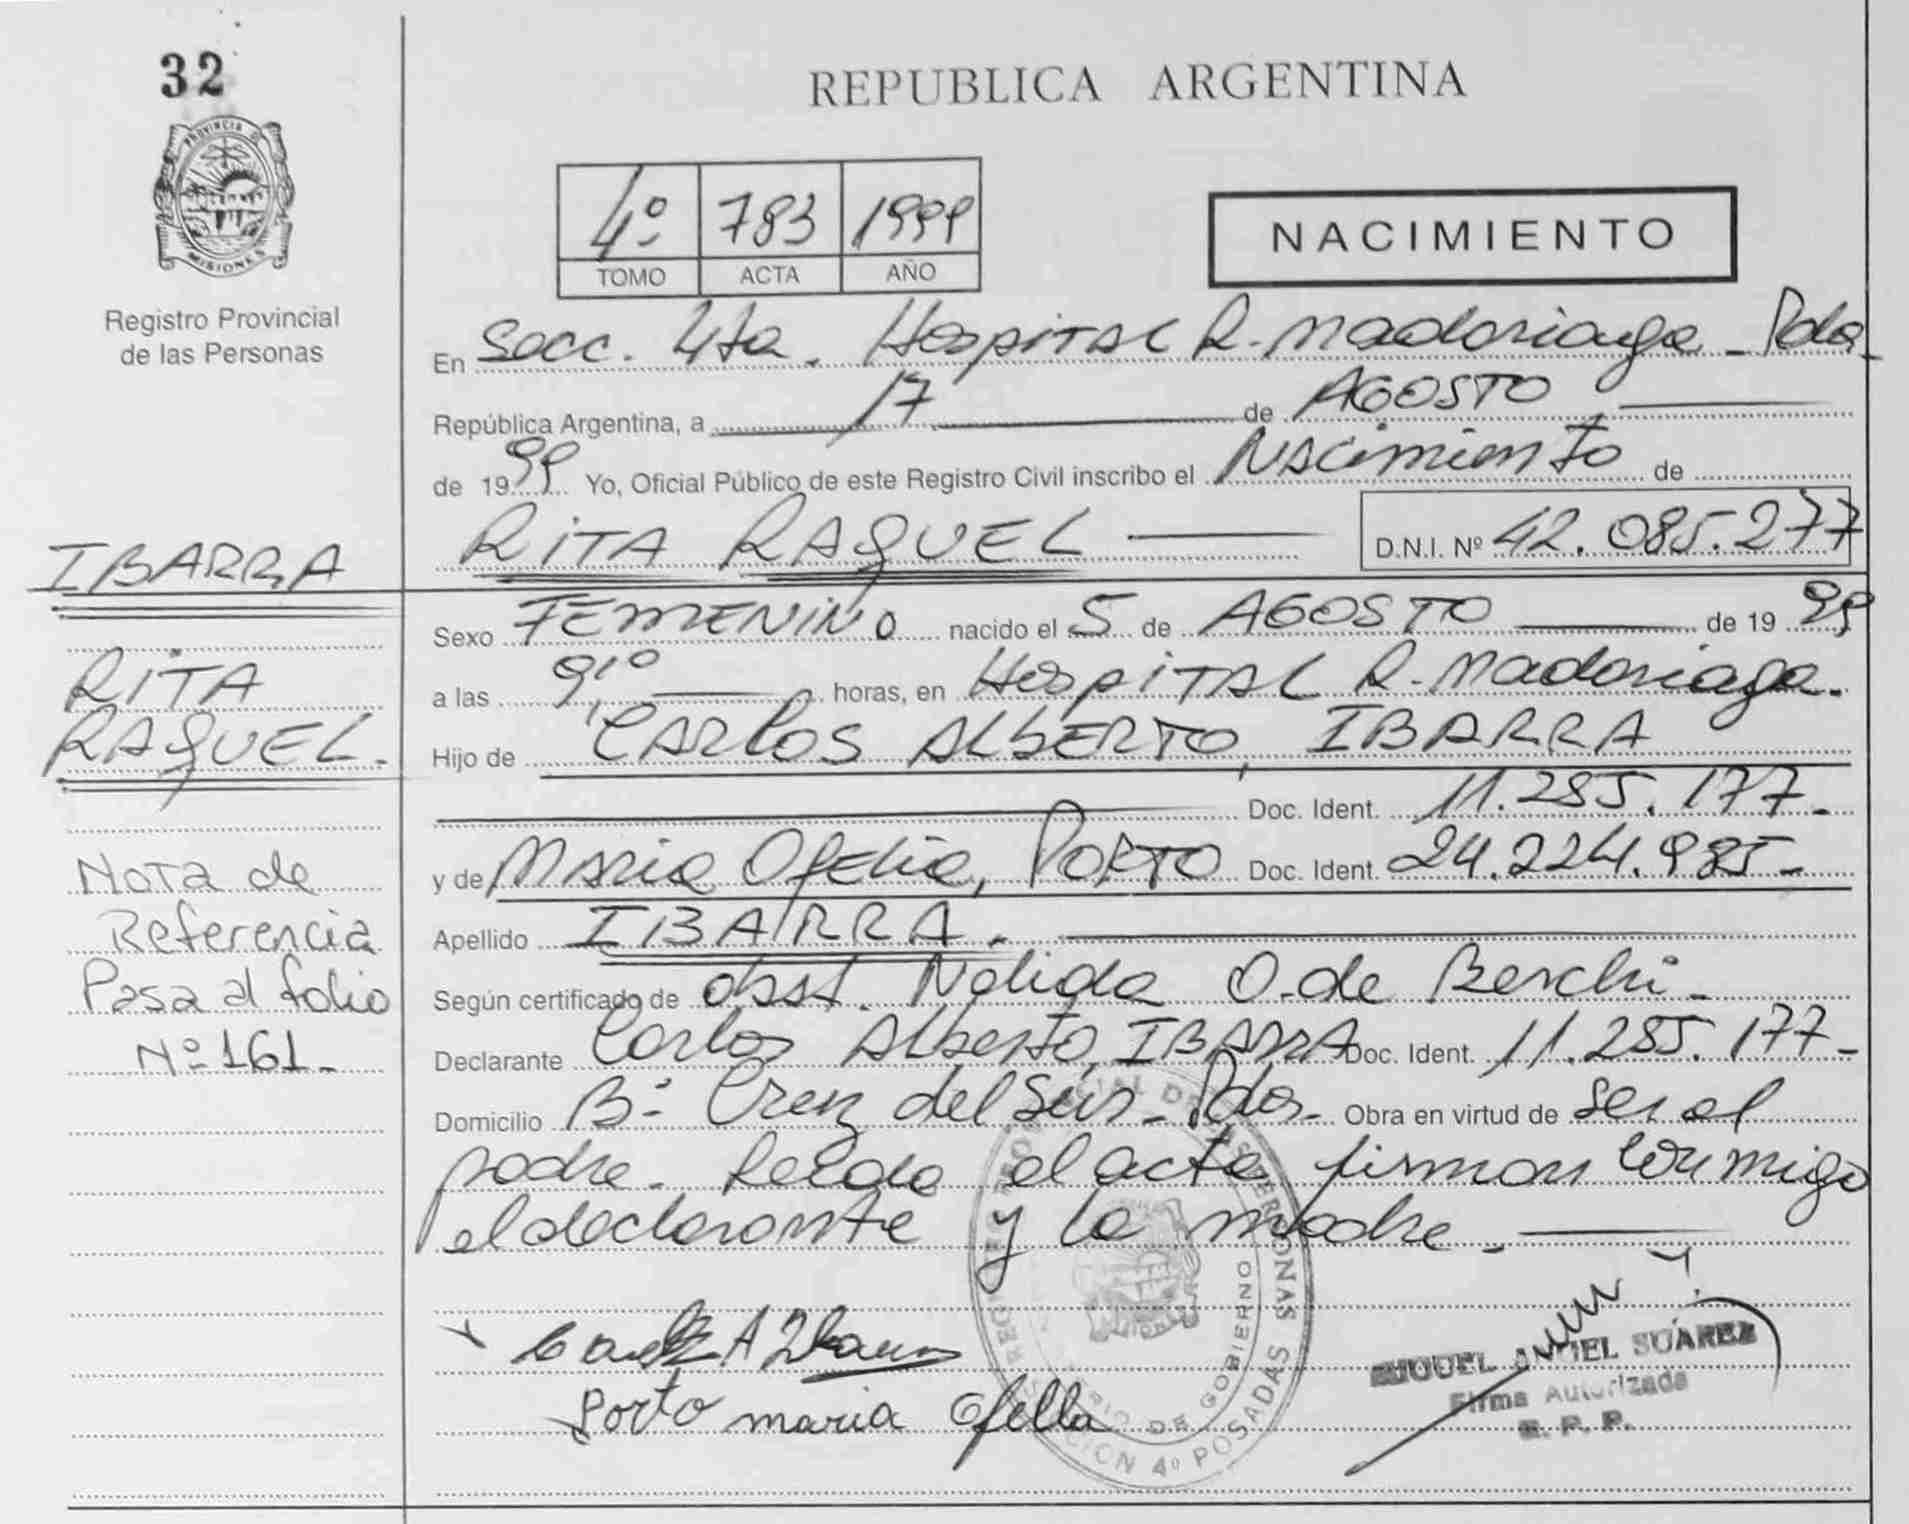 32
REPUBLICA ARGENTINA
PROVINCIA DE
MISIONES
Registro Provincial
de las Personas
4º 783 1999
TOMO ACTA AÑO
NACIMIENTO
En Secc. 4ta. Hospital R. Madariaga - Pdas-
República Argentina, a 17 de AGOSTO
de 1999 Yo, Oficial Público de este Registro Civil inscribo el Nacimiento de
RITA RAQUEL D.N.I. Nº 42.085.277
IBARRA
RITA
RAQUEL.
Nota de
Referencia
Pasa al folio
Nº 161.-
Sexo FEMENINO nacido el 5 de AGOSTO de 1999
a las 9,10 horas, en Hospital R. Madariaga.
Hijo de CARLOS ALBERTO, IBARRA
Doc. Ident. 11.285.177.-
y de Maria Ofelia, PORTO Doc. Ident. 24.224.985-
Apellido IBARRA.
Según certificado de obst. Nelida O. de Berchi-
Declarante Carlos Alberto, IBARRA Doc. Ident. 11.285.177-
Domicilio Bº Cruz del Sur- Pdas- Obra en virtud de ser el
padre. Leida el acta firman conmigo
el declarante y la madre.
Porto maria Ofelia
MIGUEL ANGEL SUAREZ
Firma Autorizada
R. P. P.
REGISTRO PROVINCIAL DE LAS PERSONAS
MINISTERIO DE GOBIERNO
SECCION 4º POSADAS